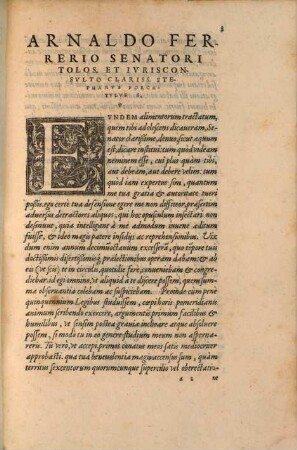 ARNALDO FER
RERIO SENATORI
TOLOS. ET IVRISCON-
SVLTO CLARISS. STE-
PHANVS FORCA-
TVLVS S.
EVNDEM alimentorum tractatum,
quem tibi adolescens dicaueram, Se-
nator clarissime, denuò, sicut æquum
est, dicare institui: tum quòd vndeam
neminem esse, cui plus quàm tibi,
aut debeam, aut debere velim: tum
quòd iam expertus sim, quantum
me tua gratia & autoritate tueri
possis. ego certè tua defensione egere me non diffiteor, præsertim
aduersus detractores aliquos, qui hoc opusculum insectari non
desinunt, quia intelligant à me admodum iuuene editum
fuisse, & ideo magis patere insidijs ac reprehensionibus. Vix
dum enim annum decimumoctauum excesseram, quo tēpore tuis
doctissimis disertissimisq́; prælectionibus operam dabam: & ab
eo (vt scis) te in circulis, quotidie ferè, conueniebam & congre-
diebar, ad egi omnino, vt aliquid à te discere possem, quem sum-
ma obseruantia colebam ac suspiciebam. Perinde cùm pene
quinquennium Legibus studuissem, cœpi horis pomeridianis
animum scribendo exercere, argumentis primum facilibus &
humilibus, vt sensim postea grauia incleare atque absoluere
possem, si modò tu in eo genere studium meum non aspernā-
reris. Tu verò, vt accepi, primos conatus meos satis mediocriter
approbasti. qua tua beneuolentia magis accensus sum, quàm
territus sexcentorum quorumcunque supercilio vel obtrectatio-
a 2 ne